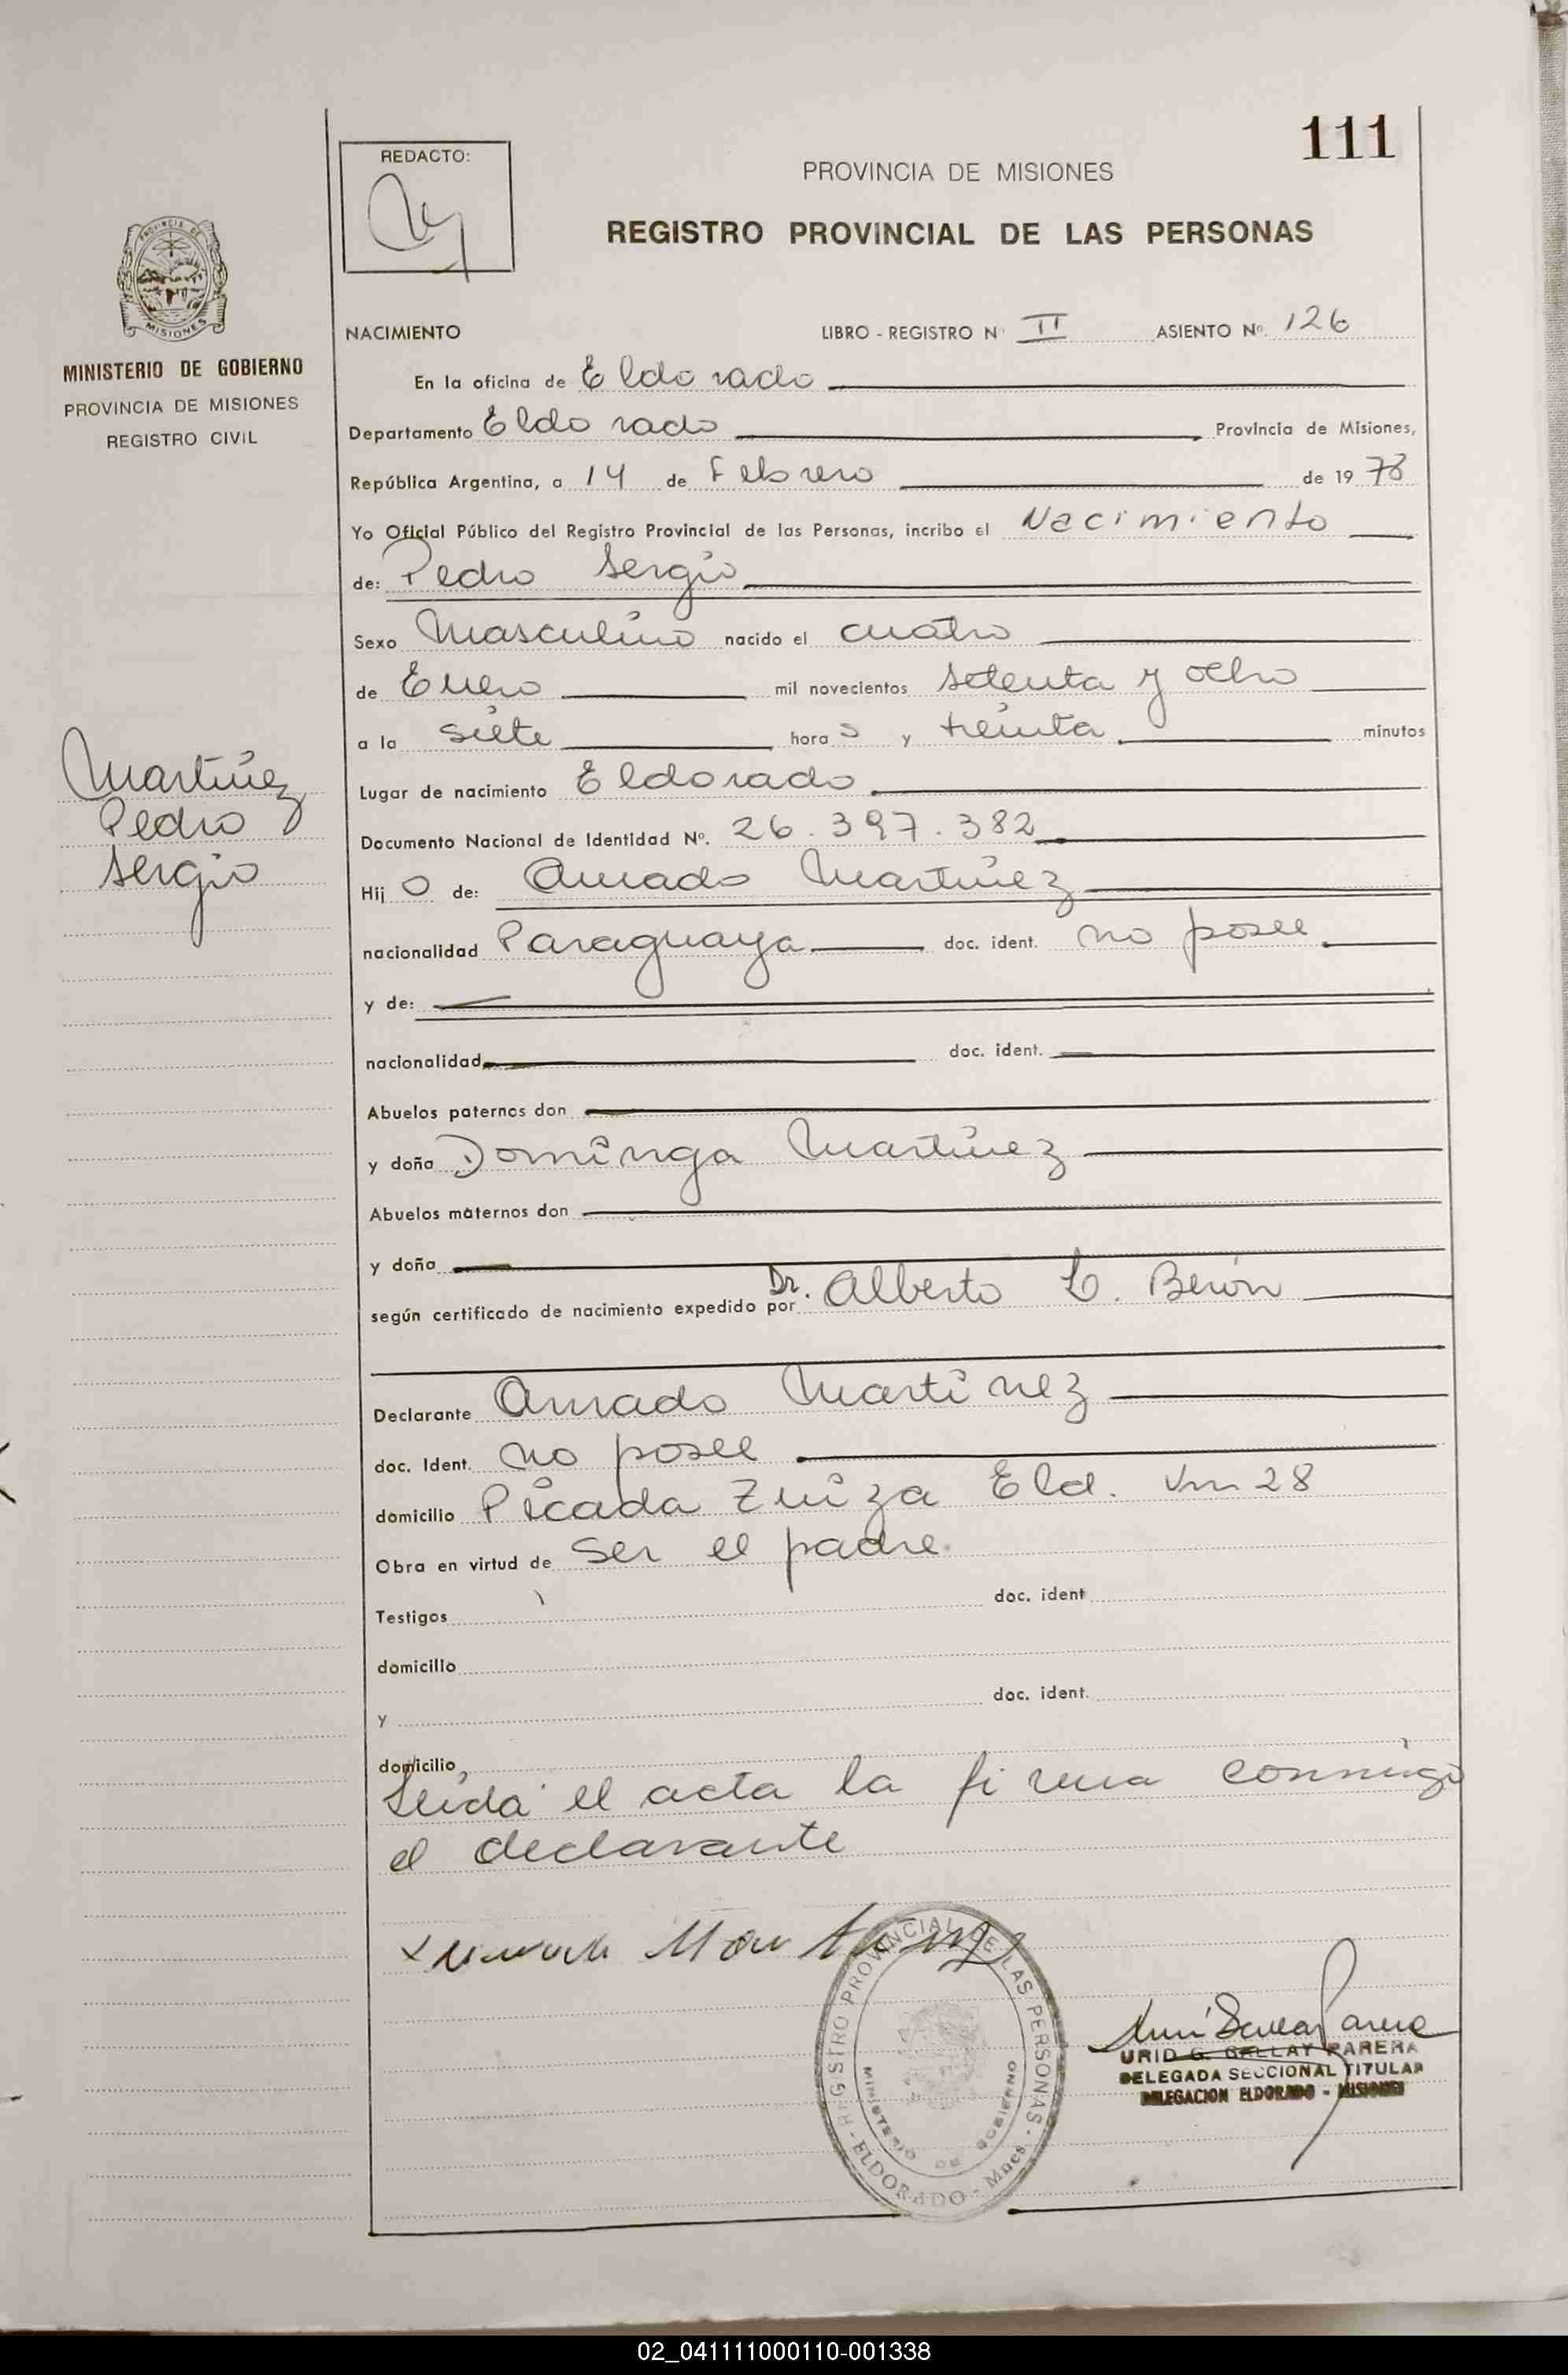 111
REDACTO:
PROVINCIA DE MISIONES
REGISTRO PROVINCIAL DE LAS PERSONAS
PROVINCIA DE
MISIONES
MINISTERIO DE GOBIERNO
PROVINCIA DE MISIONES
REGISTRO CIVIL
NACIMIENTO LIBRO - REGISTRO N° II ASIENTO Nº. 126
En la oficina de Eldorado
Departamento Eldorado Provincia de Misiones,
República Argentina, a 14 de Febrero de 19 78
Yo Oficial Público del Registro Provincial de las Personas, incribo el Nacimiento
de: Pedro Sergio
Sexo Masculino nacido el cuatro
de Enero mil novecientos setenta y ocho
a la siete hora s y treinta minutos
Martínez
Pedro
Sergio
Lugar de nacimiento Eldorado
Documento Nacional de Identidad Nº. 26.397.382
Hij o de: Amado Martínez
nacionalidad Paraguaya doc. ident. no posee
y de:
nacionalidad doc. ident.
Abuelos paternos don
y doña Dominga Martínez
Abuelos maternos don
y doña
según certificado de nacimiento expedido por Dr. Alberto L. Berón
Declarante Amado Martínez
doc. Ident. no posee
domicilio Picada Zuiza Eld. Km 28
Obra en virtud de ser el padre
Testigos doc. ident
domicilio
y doc. ident.
domicilio
Leida el acta la firma conmigo
el declarante
REGISTRO PROVINCIAL DE LAS PERSONAS - ELDORADO - Mnes.
MINISTERIO DE GOBIERNO
URID G. GALLAY PARERA
DELEGADA SECCIONAL TITULAR
DELEGACION ELDORADO - MISIONES
02_041111000110-001338